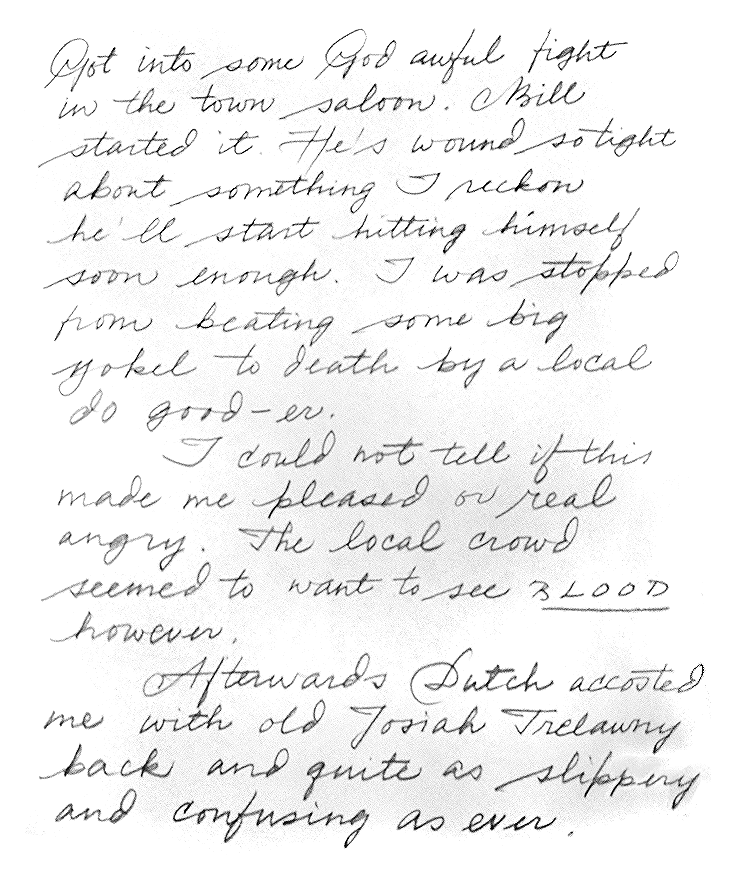 Got into some God awful fight
in the town saloon. Bill
started it. He's wound so tight
about something I reckon
he'll start hitting himself
soon enough. I was stopped
from beating some big
yokel to death by a local
do good-er.
I could not tell if this
made me pleased or real
angry. The local crowd
seemed to want to see BLOOD
however.
Afterwards Dutch accosted
me with old Josiah Trelawny
back and quite as slippery
and confusing as ever.